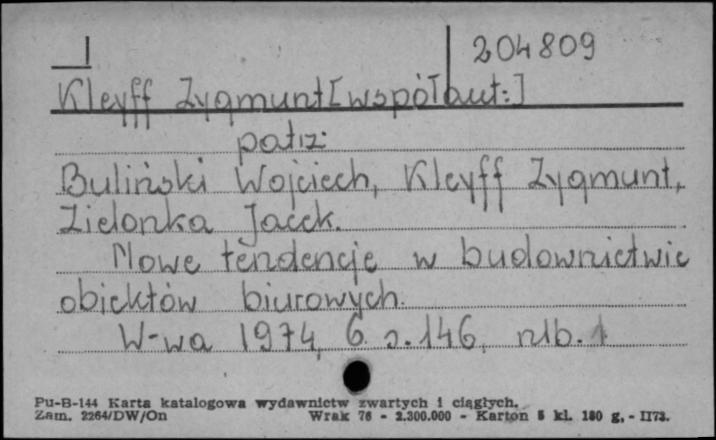 204809
Kleyff Zygmunt [współaut:]
patrz:
Buliński Wojciech, Kleyff Zygmunt,
Zielonka Jacek.
Nowe tendencje w budownictwie
obiektów biurowych.
W-wa 1974, 6. s. 146, nlb. 1
Pu-B-144 Karta katalogowa wydawnictw zwartych i ciągłych.
Zam. 2264/DW/On Wrak 76 - 2.300.000 - Karton 5 kl. 180 g. - II73.